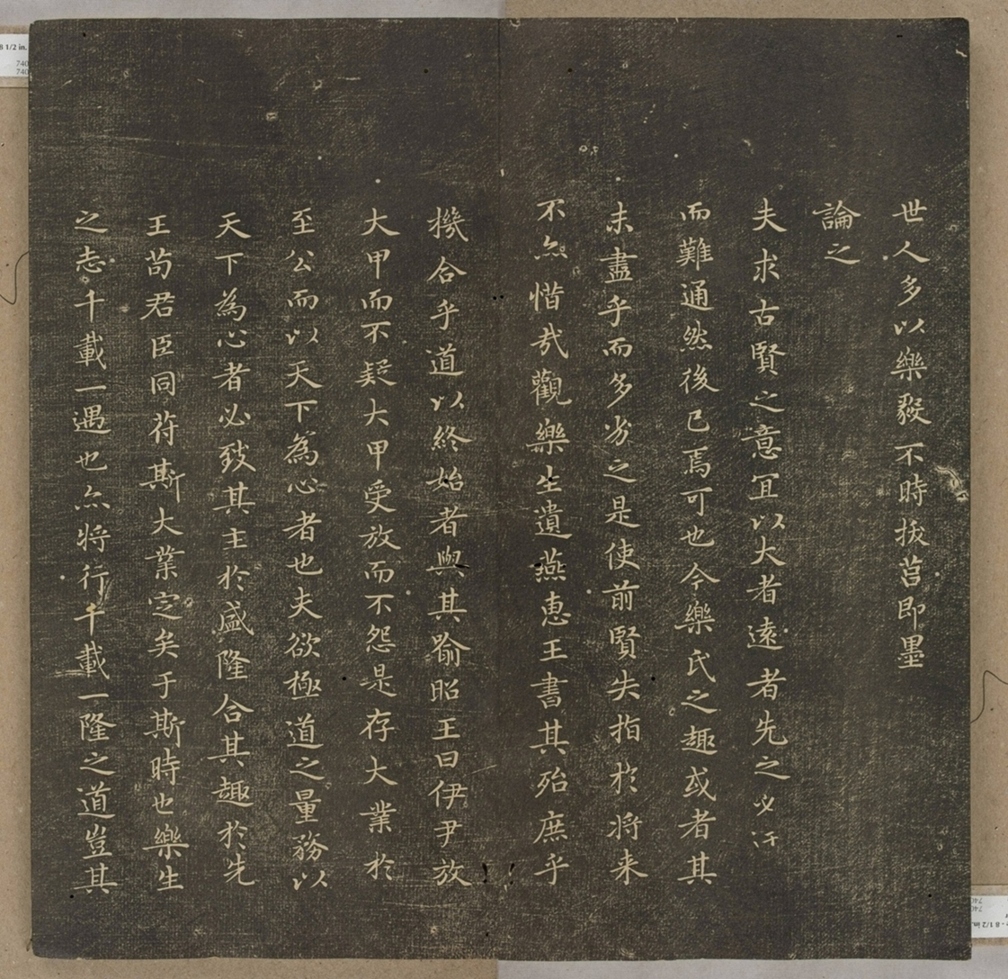 世人多以樂毅不時拔莒即墨
論之
夫求古賢之意宜以大者遠者先之必汙
而難通然後已焉可也今樂氏之趣或者其
未盡乎而多劣之是使前賢失指於将来
不亦惜哉觀樂生遺燕惠王書其殆庶乎
機合乎道以終始者與其喻昭王曰伊尹放
大甲而不疑大甲受放而不怨是存大業於
至公而以天下為心者也夫欲極道之量務以
天下為心者必致其主於盛隆合其趣於先
王苟君臣同符斯大業定矣于斯時也樂生
之志千載一遇也亦将行千載一隆之道豈其
8 1/2 in.
740
740